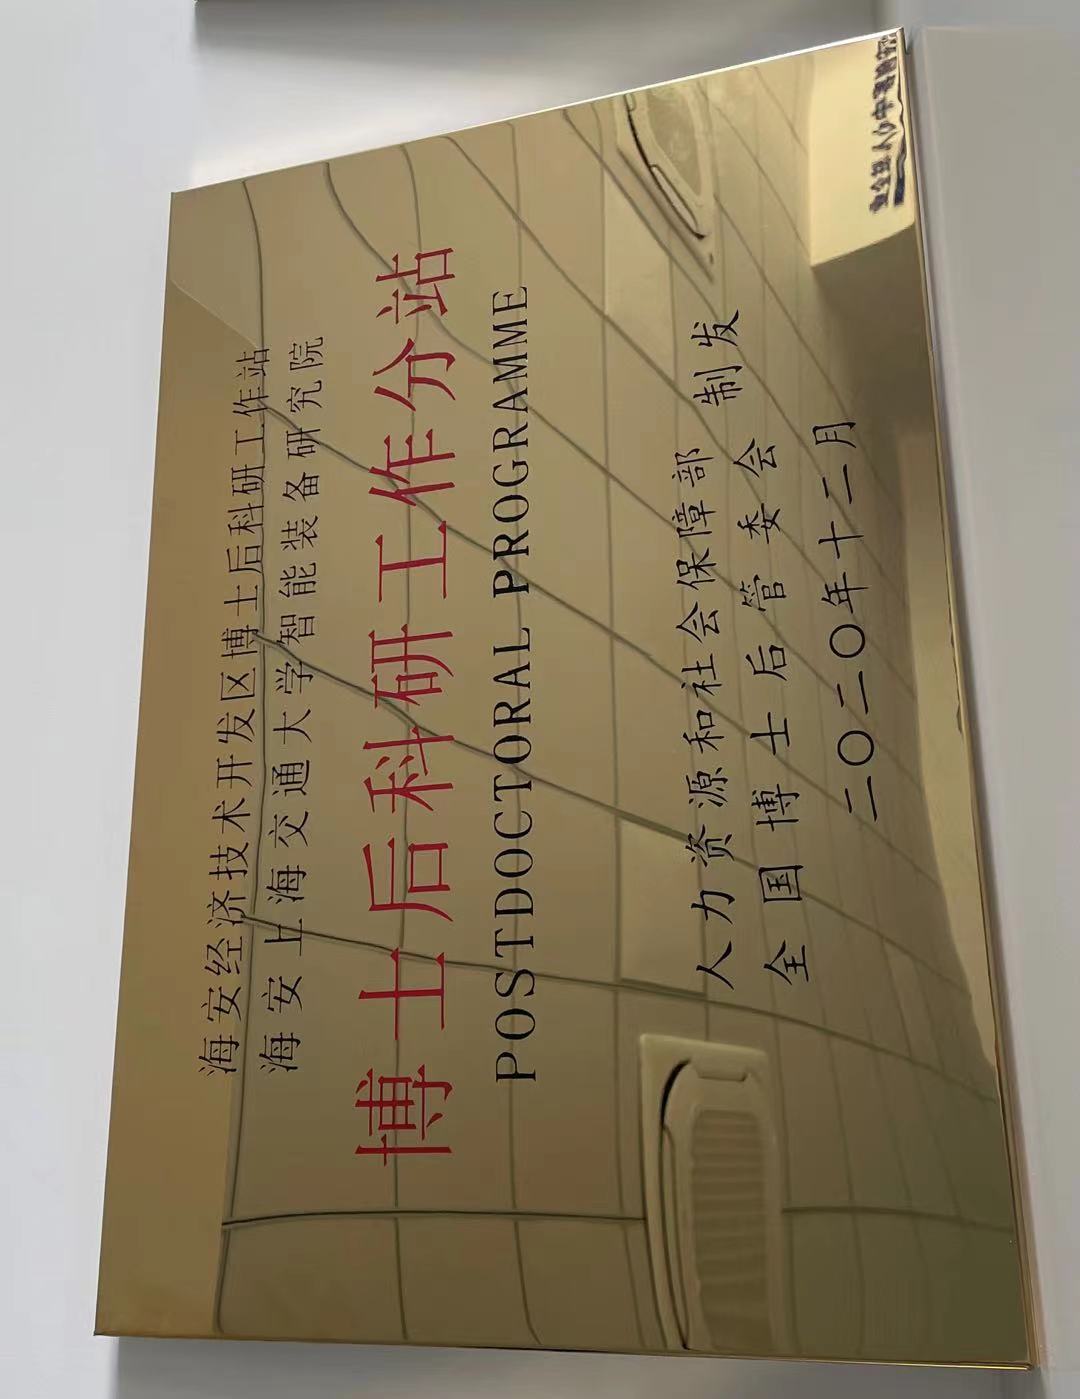 海安经济技术开发区博士后科研工作站
海安上海交通大学智能装备研究院
博士后科研工作分站
POSTDOCTORAL PROGRAMME
人力资源和社会保障部
全国博士后管委会
制发
二〇二〇年十二月